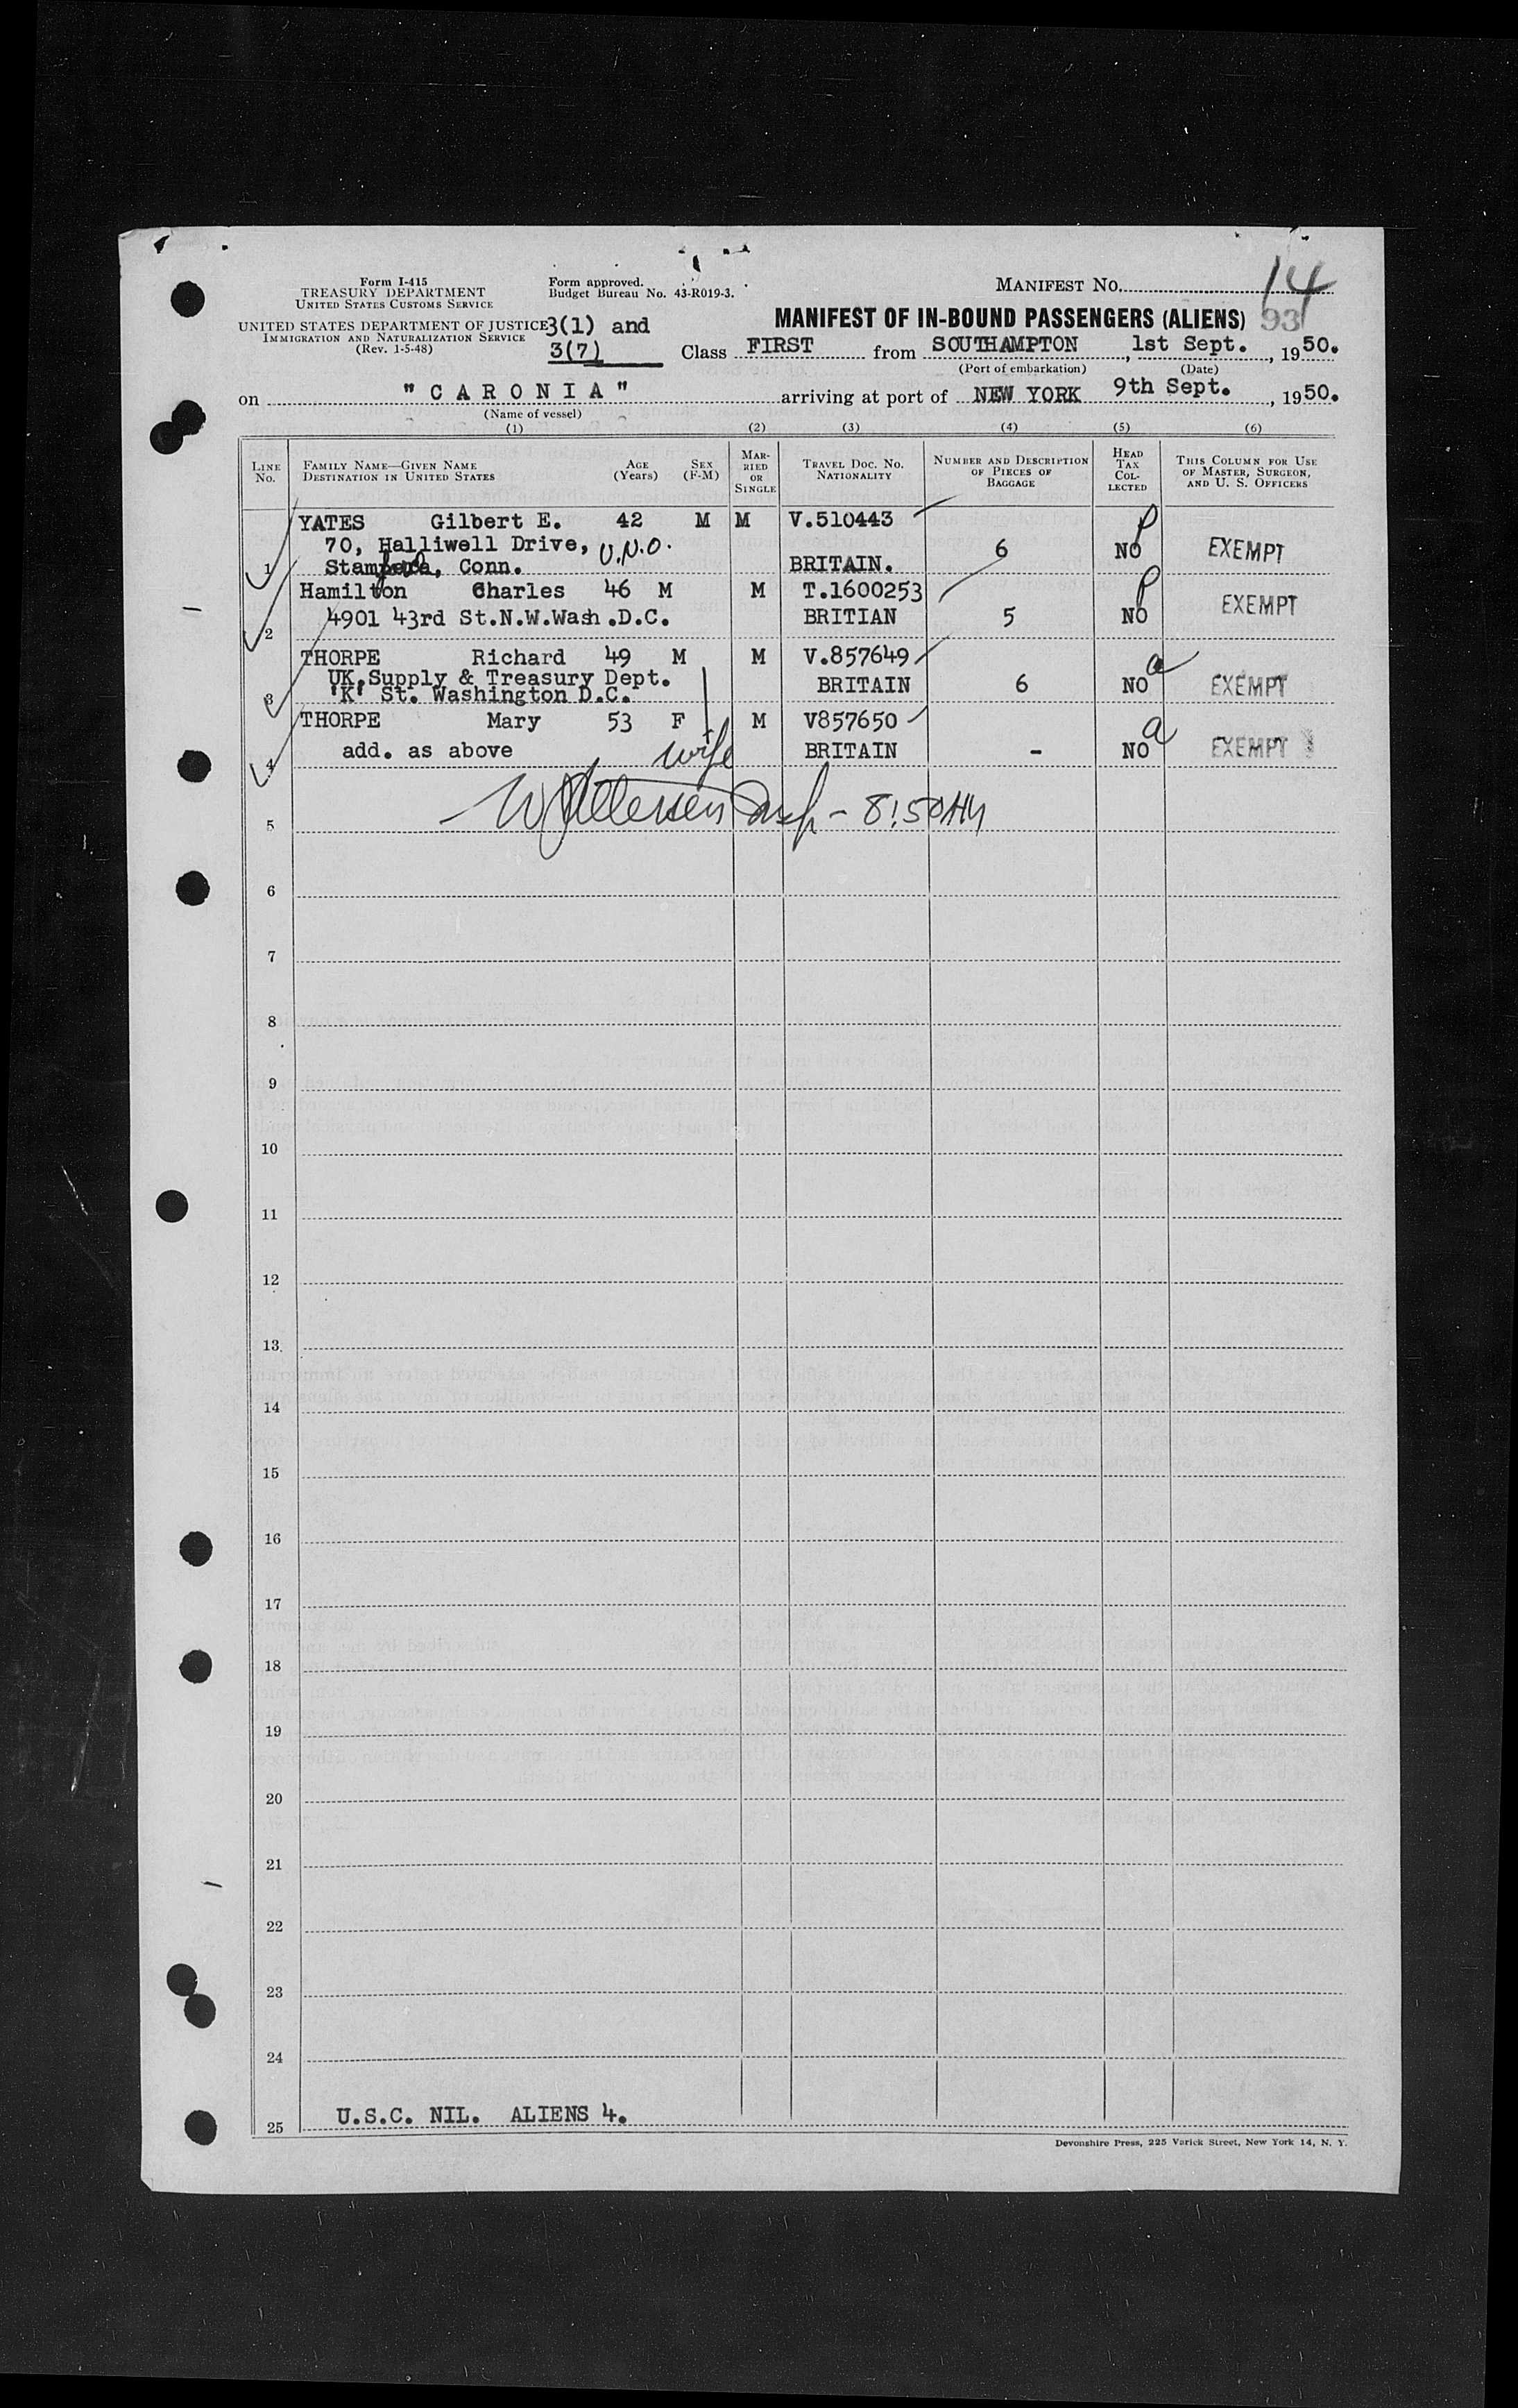 Form I-415
TREASURY DEPARTMENT
UNITED STATES CUSTOMS SERVICE
Form approved.
Budget Bureau No. 43-R019-3.
MANIFEST No. 14
UNITED STATES DEPARTMENT OF JUSTICE
IMMIGRATION AND NATURALIZATION SERVICE
(Rev. 1-5-48)
3(1) and
3(7)
MANIFEST OF IN-BOUND PASSENGERS (ALIENS) 93
Class FIRST from SOUTHAMPTON, 1st Sept., 1950.
(Port of embarkation) (Date)
on "CARONIA" arriving at port of NEW YORK 9th Sept., 1950.
(Name of vessel)
(1) (2) (3) (4) (5) (6)
LINE No. FAMILY NAME—GIVEN NAME DESTINATION IN UNITED STATES AGE (Years) SEX (F-M) MARRIED OR SINGLE TRAVEL DOC. No. NATIONALITY NUMBER AND DESCRIPTION OF PIECES OF BAGGAGE HEAD TAX COLLECTED THIS COLUMN FOR USE OF MASTER, SURGEON, AND U. S. OFFICERS
YATES Gilbert E. 42 M M V.510443
70, Halliwell Drive, U.N.O. 6 NO P EXEMPT
1 Stamford, Conn. BRITAIN.
Hamilton Charles 46 M M T.1600253 P
2 4901 43rd St.N.W.Wash.D.C. BRITIAN 5 NO EXEMPT
THORPE Richard 49 M M V.857649 a
UK.Supply & Treasury Dept. BRITAIN 6 NO EXEMPT
3 'K' St. Washington D.C.
THORPE Mary 53 F M V857650 a
4 add. as above wife BRITAIN - NO EXEMPT
5 Insp - 8:50AM
6
7
8
9
10
11
12
13
14
15
16
17
18
19
20
21
22
23
24
25 U.S.C. NIL. ALIENS 4.
Devonshire Press, 225 Varick Street, New York 14, N. Y.